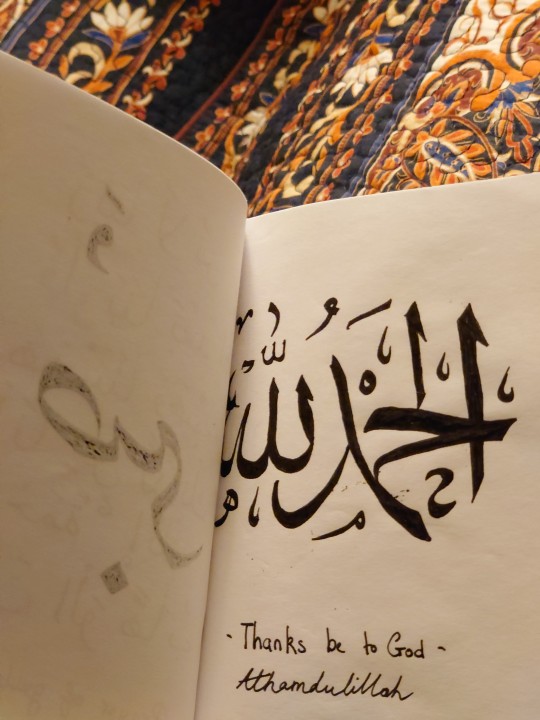 الحَمْدُ لِلّٰه
- Thanks be to God -
Alhamdulillah